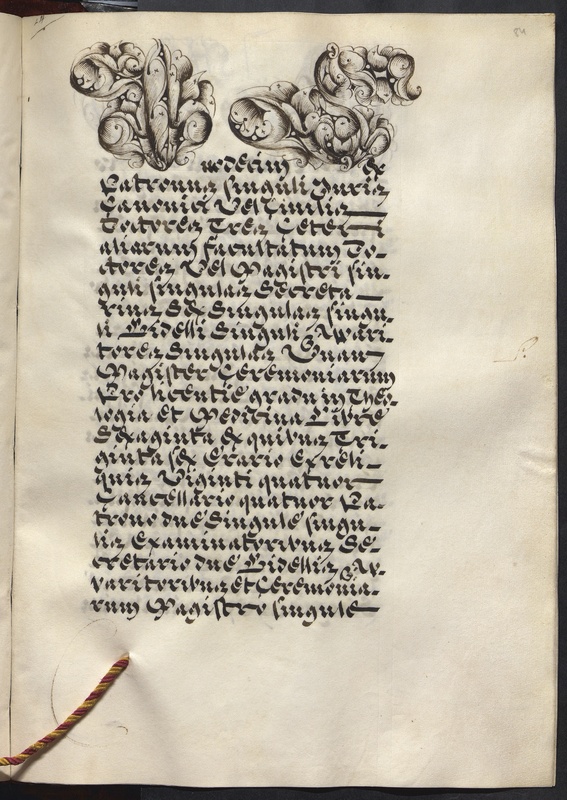 84
nodecim Ex
Patronus singuli Juris
Canonici Vel Civilis
Doctores Tres Ceteri
aliarum facultatum Do-
ctores Vel Magistri sin-
guli singulas Secreta-
rius Sex Singulas singu-
li Bidelli Singuli Awari-
tores Singulas Unam
Magister Ceremoniarum
Pro licentie gradu in Theo-
logia et Medicina Libre
Sexaginta ex quibus Tri-
ginta sex Erario ex reli-
quis Viginti quatuor
Cancellario quatuor Pa-
trono due Singule singu-
lis Examinatoribus Se-
cretario due Bidellis Aw-
varitoribus et Ceremonia-
rum Magistro singule